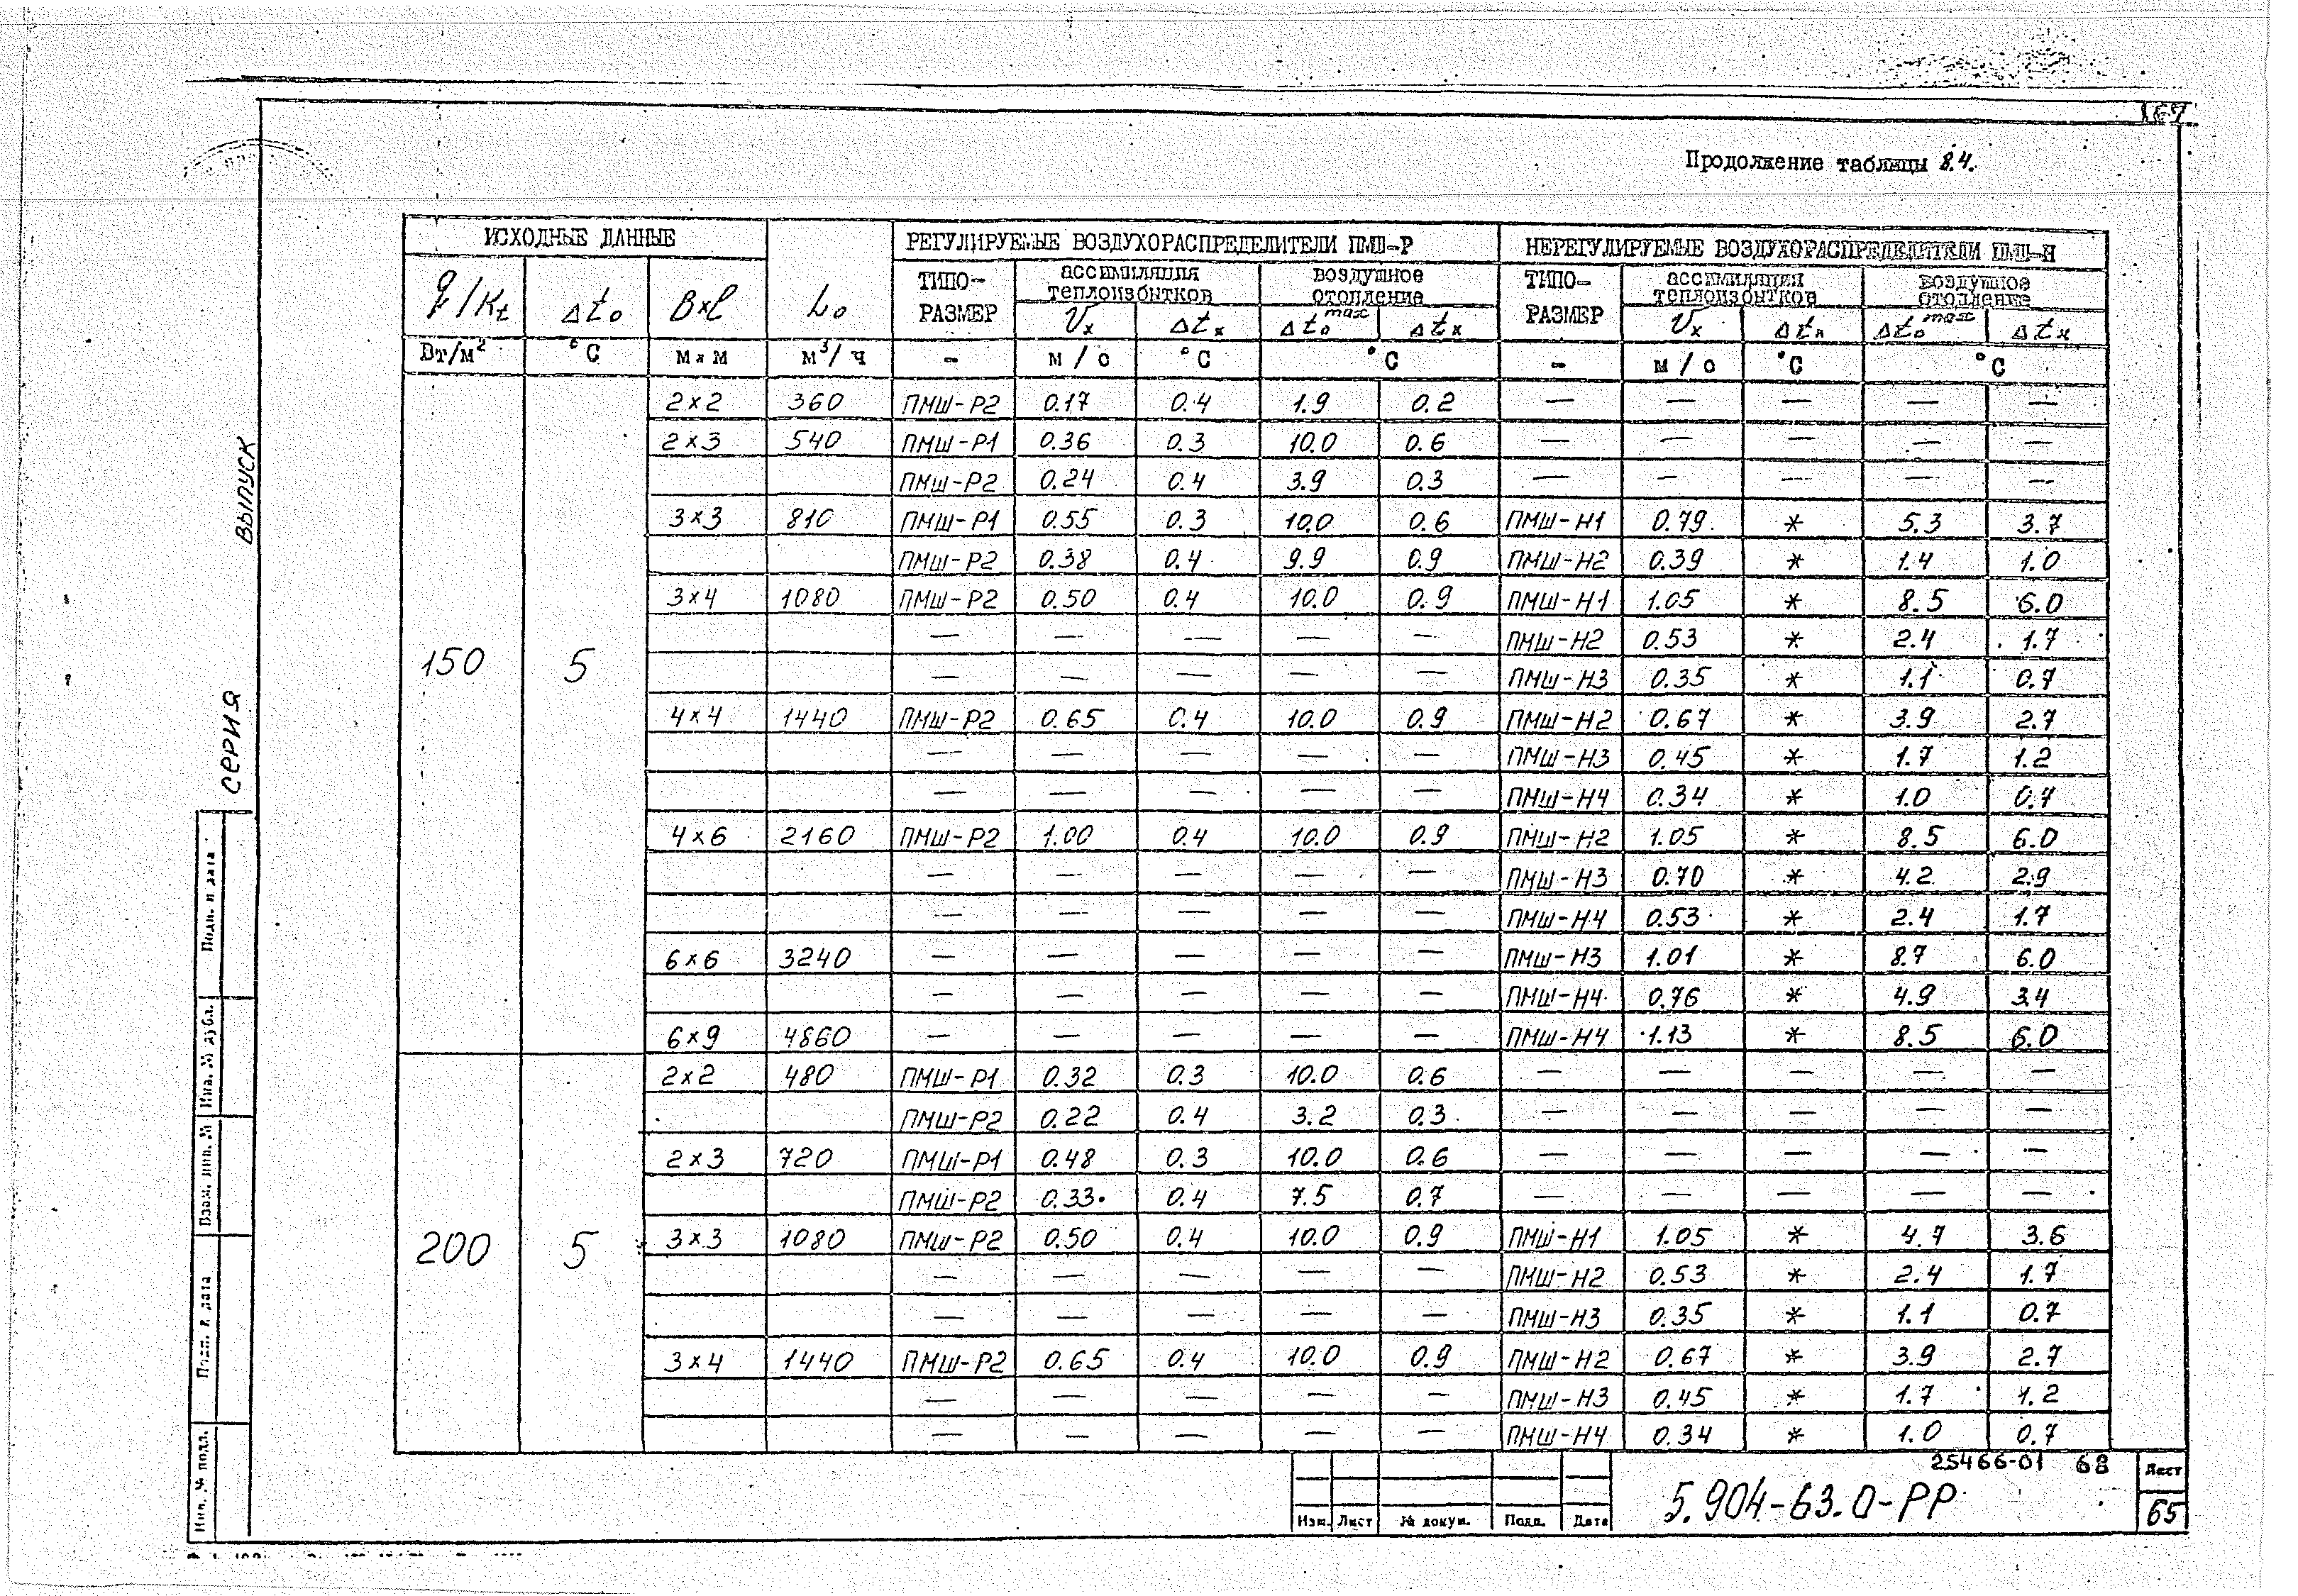 Продолжение таблицы 8.4.
ИСХОДНЫЕ ДАННЫЕ | L₀ | РЕГУЛИРУЕМЫЕ ВОЗДУХОРАСПРЕДЕЛИТЕЛИ ПМШ-Р | НЕРЕГУЛИРУЕМЫЕ ВОЗДУХОРАСПРЕДЕЛИТЕЛИ ПМШ-Н
q/Kt | Δt₀ | B×l | ТИПО-РАЗМЕР | ассимиляция теплоизбытков | воздушное отопление | ТИПО-РАЗМЕР | ассимиляция теплоизбытков | воздушное отопление
Vx | Δtx | Δt₀ max | Δtx | Vx | Δtx | Δt₀ max | Δtx
Вт/м² | °С | м×м | м³/ч | - | м/с | °С | °С | - | м/с | °С | °С
150 | 5 | 2×2 | 360 | ПМШ-Р2 | 0.17 | 0.4 | 1.9 | 0.2 | — | — | — | — | —
2×3 | 540 | ПМШ-Р1 | 0.36 | 0.3 | 10.0 | 0.6 | — | — | — | — | —
ПМШ-Р2 | 0.24 | 0.4 | 3.9 | 0.3 | — | — | — | — | —
3×3 | 810 | ПМШ-Р1 | 0.55 | 0.3 | 10.0 | 0.6 | ПМШ-Н1 | 0.79 | * | 5.3 | 3.7
ПМШ-Р2 | 0.38 | 0.4 | 9.9 | 0.9 | ПМШ-Н2 | 0.39 | * | 1.4 | 1.0
3×4 | 1080 | ПМШ-Р2 | 0.50 | 0.4 | 10.0 | 0.9 | ПМШ-Н1 | 1.05 | * | 8.5 | 6.0
— | — | — | — | — | ПМШ-Н2 | 0.53 | * | 2.4 | 1.7
— | — | — | — | — | ПМШ-Н3 | 0.35 | * | 1.1 | 0.7
4×4 | 1440 | ПМШ-Р2 | 0.65 | 0.4 | 10.0 | 0.9 | ПМШ-Н2 | 0.67 | * | 3.9 | 2.7
— | — | — | — | — | ПМШ-Н3 | 0.45 | * | 1.7 | 1.2
— | — | — | — | — | ПМШ-Н4 | 0.34 | * | 1.0 | 0.7
4×6 | 2160 | ПМШ-Р2 | 1.00 | 0.4 | 10.0 | 0.9 | ПМШ-Н2 | 1.05 | * | 8.5 | 6.0
— | — | — | — | — | ПМШ-Н3 | 0.70 | * | 4.2 | 2.9
— | — | — | — | — | ПМШ-Н4 | 0.53 | * | 2.4 | 1.7
6×6 | 3240 | — | — | — | — | — | ПМШ-Н3 | 1.01 | * | 8.7 | 6.0
— | — | — | — | — | ПМШ-Н4 | 0.76 | * | 4.9 | 3.4
6×9 | 4860 | — | — | — | — | — | ПМШ-Н4 | 1.13 | * | 8.5 | 6.0
200 | 5 | 2×2 | 480 | ПМШ-Р1 | 0.32 | 0.3 | 10.0 | 0.6 | — | — | — | — | —
ПМШ-Р2 | 0.22 | 0.4 | 3.2 | 0.3 | — | — | — | — | —
2×3 | 720 | ПМШ-Р1 | 0.48 | 0.3 | 10.0 | 0.6 | — | — | — | — | —
ПМШ-Р2 | 0.33 | 0.4 | 7.5 | 0.7 | — | — | — | — | —
3×3 | 1080 | ПМШ-Р2 | 0.50 | 0.4 | 10.0 | 0.9 | ПМШ-Н1 | 1.05 | * | 4.7 | 3.6
— | — | — | — | — | ПМШ-Н2 | 0.53 | * | 2.4 | 1.7
— | — | — | — | — | ПМШ-Н3 | 0.35 | * | 1.1 | 0.7
3×4 | 1440 | ПМШ-Р2 | 0.65 | 0.4 | 10.0 | 0.9 | ПМШ-Н2 | 0.67 | * | 3.9 | 2.7
— | — | — | — | — | ПМШ-Н3 | 0.45 | * | 1.7 | 1.2
— | — | — | — | — | ПМШ-Н4 | 0.34 | * | 1.0 | 0.7
СЕРИЯ ВЫПУСК
Подп. и дата
Инв. № дубл.
Взам. инв. №
Подп. и дата
Инв. № подл.
25466-01 68
Изм. Лист № докум. Подп. Дата
5.904-63.0-РР
Лист
65